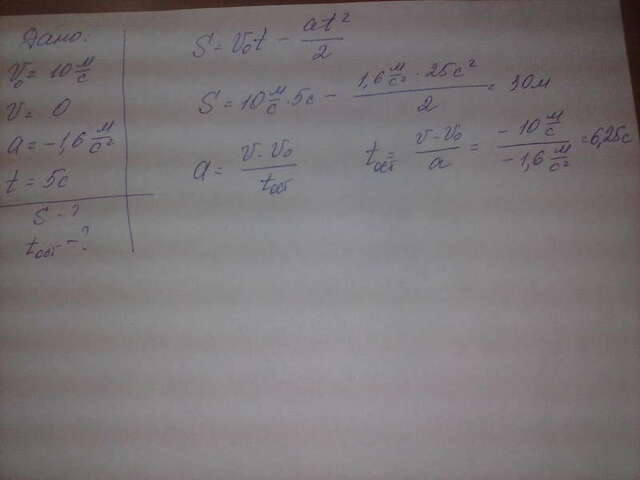 Дано:
V₀ = 10 м/с
v = 0
a = -1,6 м/с²
t = 5с
S - ?
tост - ?
S = V₀t - at²/2
S = 10 м/с · 5с - 1,6 м/с² · 25с²/2 = 30м
a = v - v₀/tост
tост = v - v₀/a = -10 м/с/-1,6 м/с² = 6,25с